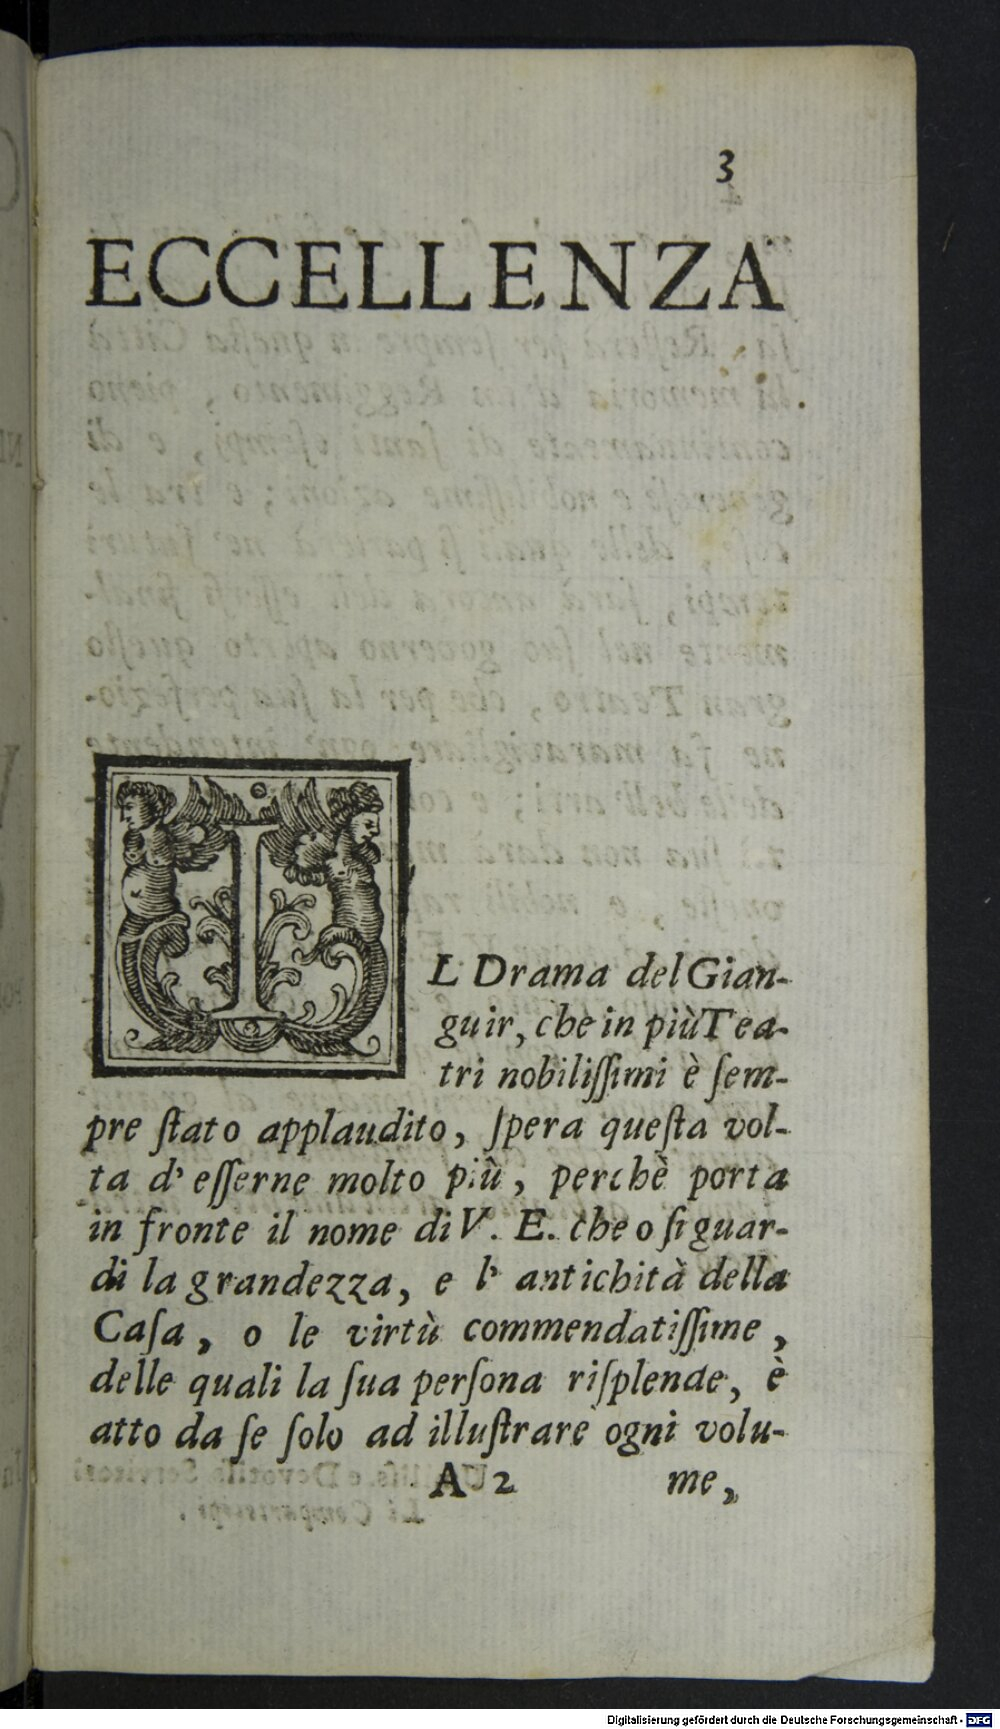 3
ECCELLENZA
IL Drama del Gian-
guir, che in più Tea-
tri nobiliſſimi è ſem-
pre ſtato applaudito, ſpera queſta vol-
ta d' eſſerne molto più, perchè porta
in fronte il nome di V. E. che o ſi guar-
di la grandezza, e l' antichità della
Caſa, o le virtù commendatiſſime,
delle quali la ſua perſona riſplende, è
atto da ſe ſolo ad illuſtrare ogni volu-
A 2 me,
Digitalisierung gefördert durch die Deutsche Forschungsgemeinschaft - DFG